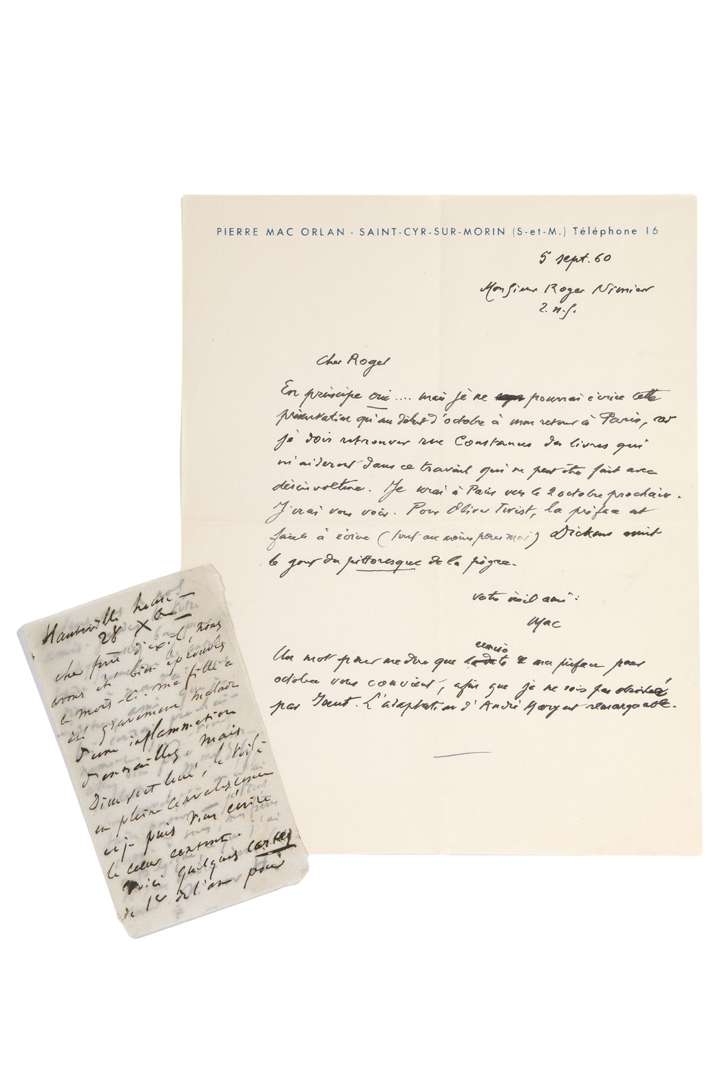 PIERRE MAC ORLAN - SAINT-CYR-SUR-MORIN (S-et-M.) Téléphone 16
5 sept. 60
Monsieur Roger Nimier
Cher Roger
En principe oui.... mais je ne pourrai écrire cette
présentation qu'au début d'octobre à mon retour à Paris, car
je dois retrouver rue Constance des livres qui
m'aideront dans ce travail qui ne peut être fait avec
désinvolture. Je serai à Paris vers le 2 octobre prochain.
J'irai vous voir. Pour Oliver Twist, la préface est
facile à écrire (tout au moins pour moi) Dickens avait
le goût du pittoresque de la pègre.
votre vieil ami:
Mac
Un mot pour me dire que ma préface pour
octobre vous convient, afin que je ne sois pas
par . L'adaptation d'André remarquable.
Hauteville house
28 X
cher , nous
avons été bien éprouvés
ce mois-ci. ma fille a
été gravement malade
d'une inflammation
d'entrailles, mais
Dieu soit loué, la voilà
en pleine convalescence
et je puis vous écrire
le cœur content.
Voici quelques cartes
de 1er de l'an pour